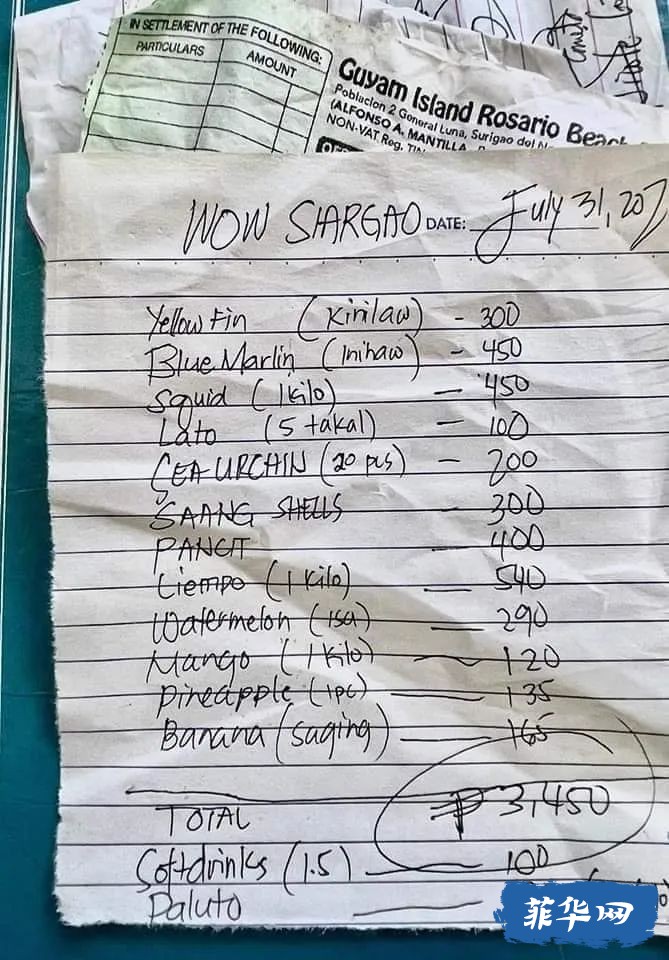 IN SETTLEMENT OF THE FOLLOWING:
PARTICULARS AMOUNT
Guyam Island Rosario Beach
Poblacion 2 General Luna, Surigao del
(ALFONSO A. MANTILLA
NON-VAT Reg. TIN
WOW SIARGAO DATE: July 31, 202
Yellow Fin (Kinilaw) - 300
Blue Marlin (Inihaw) - 450
Squid (1 kilo) - 450
Lato (5 takal) - 100
CEA-URCHIN (20 pcs) - 200
SAANG SHELLS 300
PANCIT - 400
Liempo (1 kilo) - 540
Watermelon (isa) - 290
Mango (1 kilo) - 120
Pineapple (1pc) - 135
Banana (saging) - 165
TOTAL ₱ 3,450
Softdrinks (1.5) - 100
Paluto -
菲华网